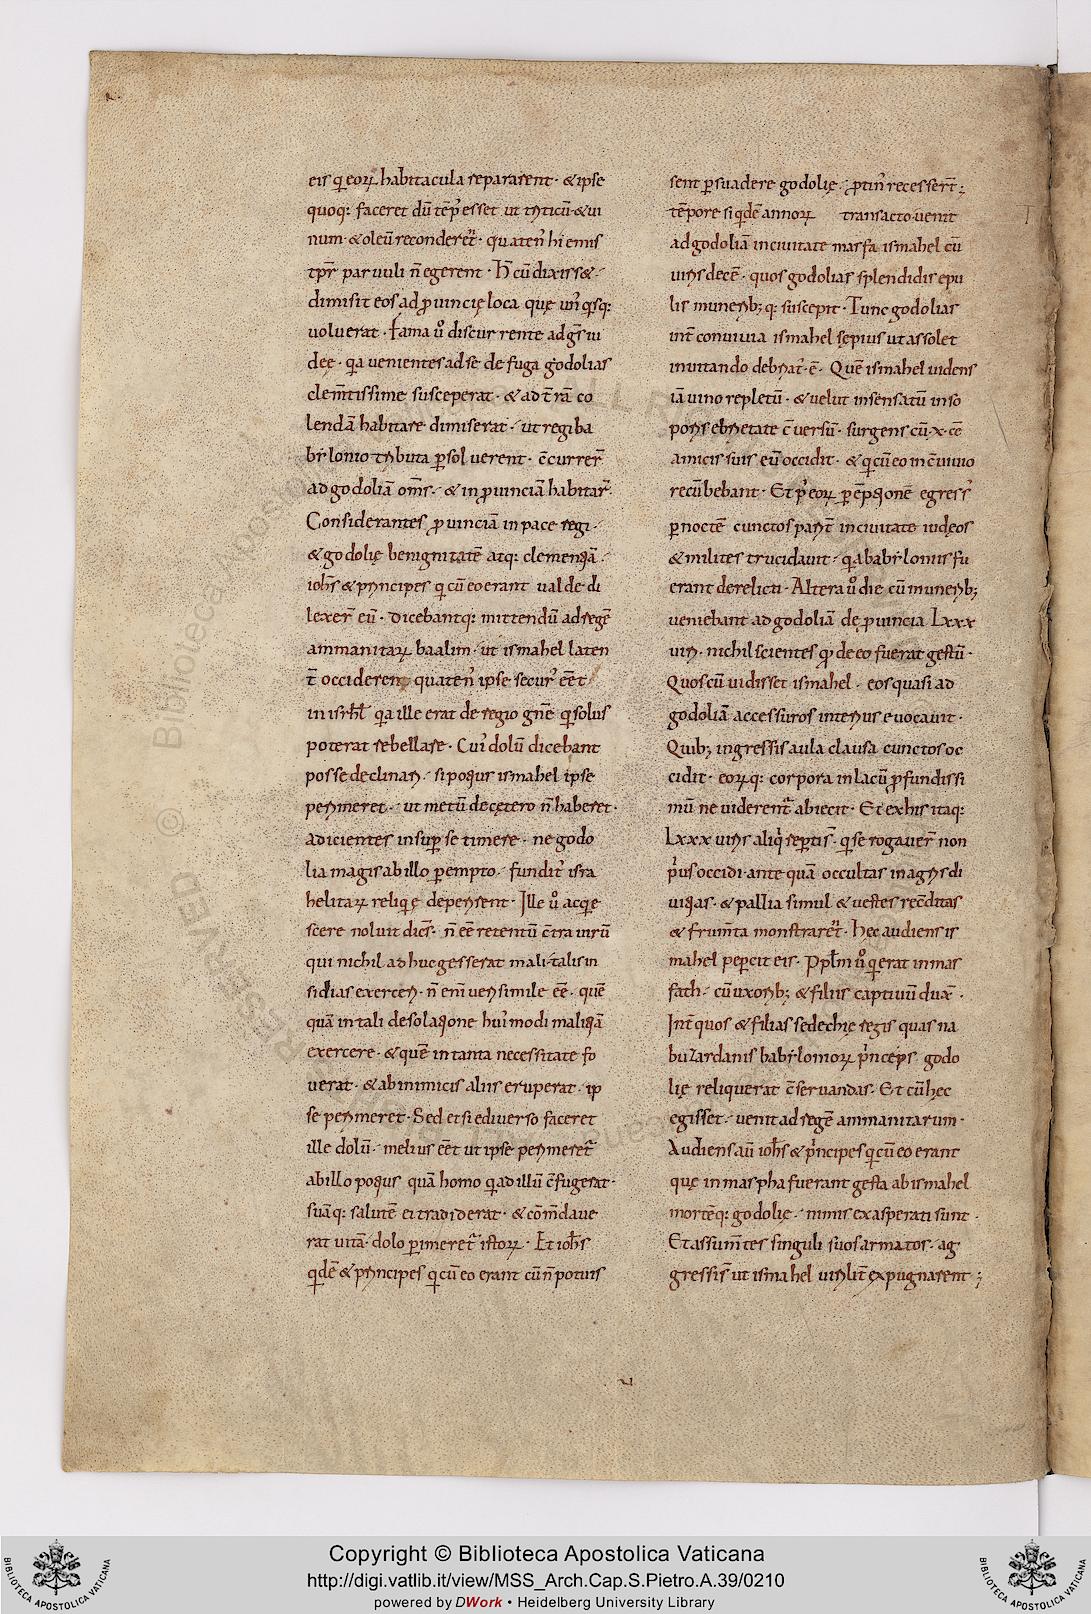 eis q eoꝝ habitacula separasent· & ipse
quoq: faceret dū tēp' esset ut triticū & ui
num· & oleū reconderet'· quaten' hiemis
tpr̄ paruuli n̄ egerent· H̄ cū dixiss&·
dimisit eos ad ꝓuincię loca quę un'q'sq:
uoluerat· Fama u° discurrente ad gr̄s iu
dęę· qa uenientes ad se de fuga godolias
clem̄tissime susceperat· & ad t̄rā co
lendā habitare dimiserat· ut regi ba
bẏlonio tributa ꝑsoluerent· c̄currer̄
ad godoliā om̄s· & in ꝓuinciā habitar̄·
Considerantes ꝓuinciā in pace regi·
& godolię benignitatē atq: clementiā·
ioh̄s & principes q cū eo erant ualde di
lexer̄ eū· Dicebantq: mittendū ad regē
ammanitaꝝ baalim· ut ismahel laten
t̄ occideren quaten' ipse secur' eēt
in isrl̄ qa ille erat de regio gn̄e q solus
poterat rebellare· Cui' dolū dicebant
posse declinari· si potius ismahel ipse
perimeret· ut metū de cętero n̄ haberet·
adicientes insuꝑ se timere· ne godo
lia magis ab illo ꝑempto· fundit' isra
helitaꝝ reliquię deperirent· Ille u° acqe
scere noluit dic̄s· n̄ eē retentū c̄tra uirū
qui nichil adhuc gesserat mali· talis in
sidias exerceri· n̄ eni' uerisimile eē· quē
quā in tali desolatione hui'modi malitiā
exercere· & quē in tanta necessitate fo
uerat· & ab inimicis aliis eruperat· ip
se perimeret· Sed etsi ediuerso faceret
ille dolū· melius eēt ut ipse perimeret'
ab illo potius quā homo q ad illū c̄fugerat·
suāq: salutē ei tradiderat· & cōm̄daue
rat uitā· dolo ꝑimeret' istoꝝ· Et ioh̄s
qdē & principes q cū eo erant cū n̄ potuis
sent ꝑsuadere godolię· ꝓtin' recesser̄t·
tēpore siqdē annoꝝ transacto uenit
ad godoliā in ciuitate masfa ismahel cū
uiris decē· quos godolias splendidis epu
lis munerib;q: suscepit· Tunc godolias
int̄ conuiuia ismahel sepius ut assolet
inuitando debriat' ē· Quē ismahel uidens
iā uino repletū· & uelut insensatū in so
poris ebrietate c̄uersū· surgens cū·x· cē
amicis suis eū occidit· & q cū eo in c̄uiuio
recūbebant· Et p' eoꝝ ꝑēptionē egress'
ꝑ noctē cunctos parit̄ in ciuitate iudęos
& milites trucidauit· q a babẏloniis fu
erant derelicti· Altera u° die cū munerib;
ueniebant ad godoliā de ꝓuincia Lxxx
uiri· nichil scientes qd de eo fuerat gestū·
Quos cū uidisset ismahel· eos quasi ad
godoliā accessuros interius euocauit·
Quib; ingressis aula clausa cunctos oc
cidit· eoꝝq: corpora in lacū ꝓfundissi
mū ne uiderent' abiecit· Et ex his itaq:
Lxxx uiris aliq reꝑtis'· q se rogauer̄ non
p'us occidi ante quā occultas in agris di
uitias· & pallia simul & uestes recōditas
& frum̄ta monstraret'· Hęc audiens is
mahel peꝑcit eis· Ppl̄m u° q erat in mas
fath· cū uxorib; & filiis captiuū dux̄·
Int̄ quos & filias sedechię regis quas na
buzardanis babẏlonioꝝ p'nceps godo
lię reliquerat c̄seruandas· Et cū hęc
egisset· uenit ad regē ammanitarum·
Audiens aū ioh̄s & p'ncipes q cū eo erant
quę in maspha fuerant gesta ab ismahel
mortēq: godolię· nimis exasperati sunt·
Et assum̄tes singuli suos armatos· ag
gressis' ut ismahel uirilit̄ expugnarent·
Copyright © Biblioteca Apostolica Vaticana
http://digi.vatlib.it/view/MSS_Arch.Cap.S.Pietro.A.39/0210
powered by DWork • Heidelberg University Library